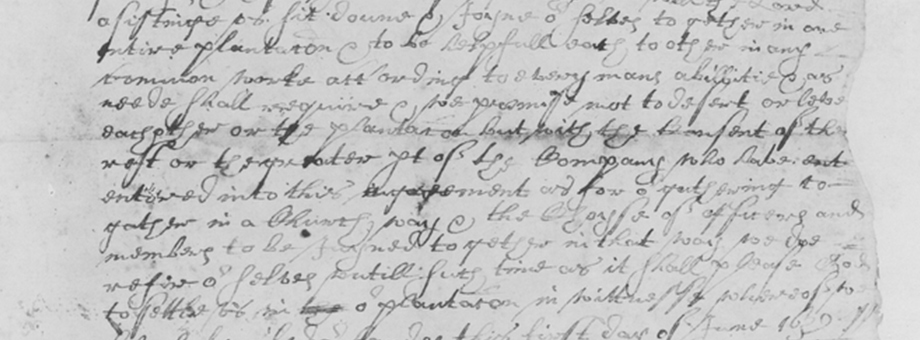 asistance os sit downe & Joyne oʳ selves to gether in one
intire plantaton & to be helpfull each to other in any
common worke according to every mans abillitie & as
neede shall require & we promise not to desert or leve
each other or the plantaton but with the consent of the
rest or the greater pt of the Company who have ent
entered into this agreement as for oʳ gathering to
gather in a Church way & the Choysse of officers and
members to be Joyned to gether in that way we do
refire oʳ selves untill such time as it shall please God
to settle us in oʳ plantaton in wittnesse whereof we
this first day of June